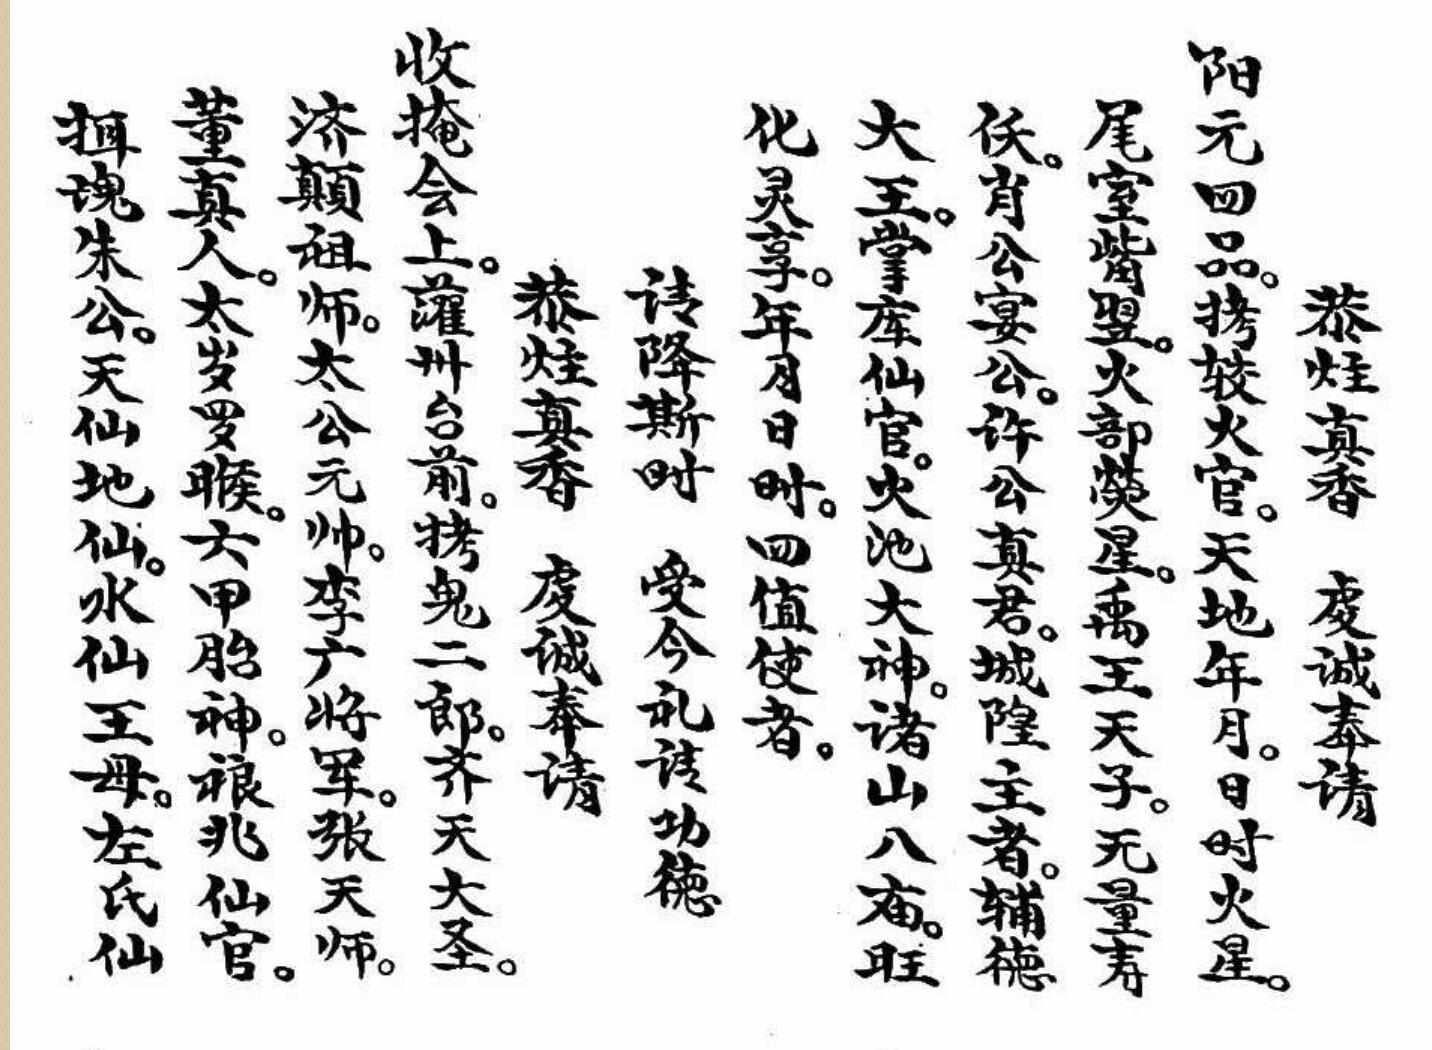 恭炷真香　虔诚奉请
阳元四品。拷较火官。天地年月。日时火星。
尾室觜翌。火部荧星。禹王天子。无量寿
佅。肖公宴公。许公真君。城隍主者。辅德
大王。掌库仙官。火池大神。诸山八庙。旺
化灵享。年月日时。四值使者。
请降斯时　受今礼请功德
恭炷真香　虔诚奉请
收掩会上。藿州台前。拷鬼二郎。齐天大圣。
济颠祖师。太公元帅。李广将军。张天师。
董真人。太岁罗睺。六甲胎神。裉兆仙官。
挕魂朱公。天仙地仙。水仙王母。左氏仙